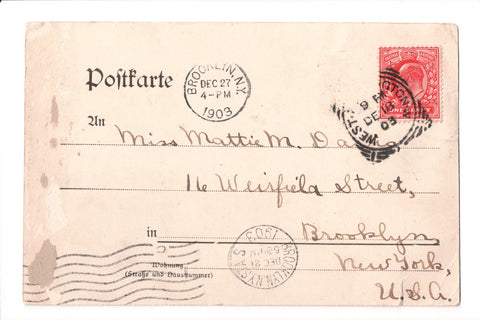 BROOKLYN, N.Y.
DEC 27
4-PM
1903
Postkarte
DE 18
03
An Miss Mattie M.
16 Weirfield Street,
in Brooklyn
New York,
U.S.A.
Wohnung
(Straße und Hausnummer)
1903
DEC 27
BROOKLYN, N.Y.